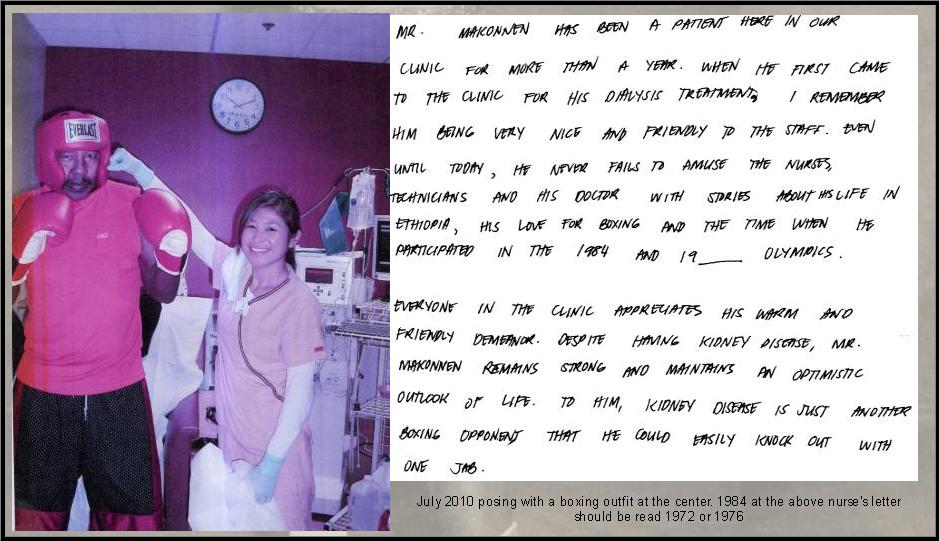 EVERLAST
MR. MAKONNEN HAS BEEN A PATIENT HERE IN OUR
CLINIC FOR MORE THAN A YEAR. WHEN HE FIRST CAME
TO THE CLINIC FOR HIS DIALYSIS TREATMENT, I REMEMBER
HIM BEING VERY NICE AND FRIENDLY TO THE STAFF. EVEN
UNTIL TODAY, HE NEVER FAILS TO AMUSE THE NURSES,
TECHNICIANS AND HIS DOCTOR WITH STORIES ABOUT HIS LIFE IN
ETHIOPIA, HIS LOVE FOR BOXING AND THE TIME WHEN HE
PARTICIPATED IN THE 1984 AND 19____ OLYMPICS.
EVERYONE IN THE CLINIC APPRECIATES HIS WARM AND
FRIENDLY DEMEANOR. DESPITE HAVING KIDNEY DISEASE, MR.
MAKONNEN REMAINS STRONG AND MAINTAINS AN OPTIMISTIC
OUTLOOK OF LIFE. TO HIM, KIDNEY DISEASE IS JUST ANOTHER
BOXING OPPONENT THAT HE COULD EASILY KNOCK OUT WITH
ONE JAB.
July 2010 posing with a boxing outfit at the center. 1984 at the above nurse's letter
should be read 1972 or 1976